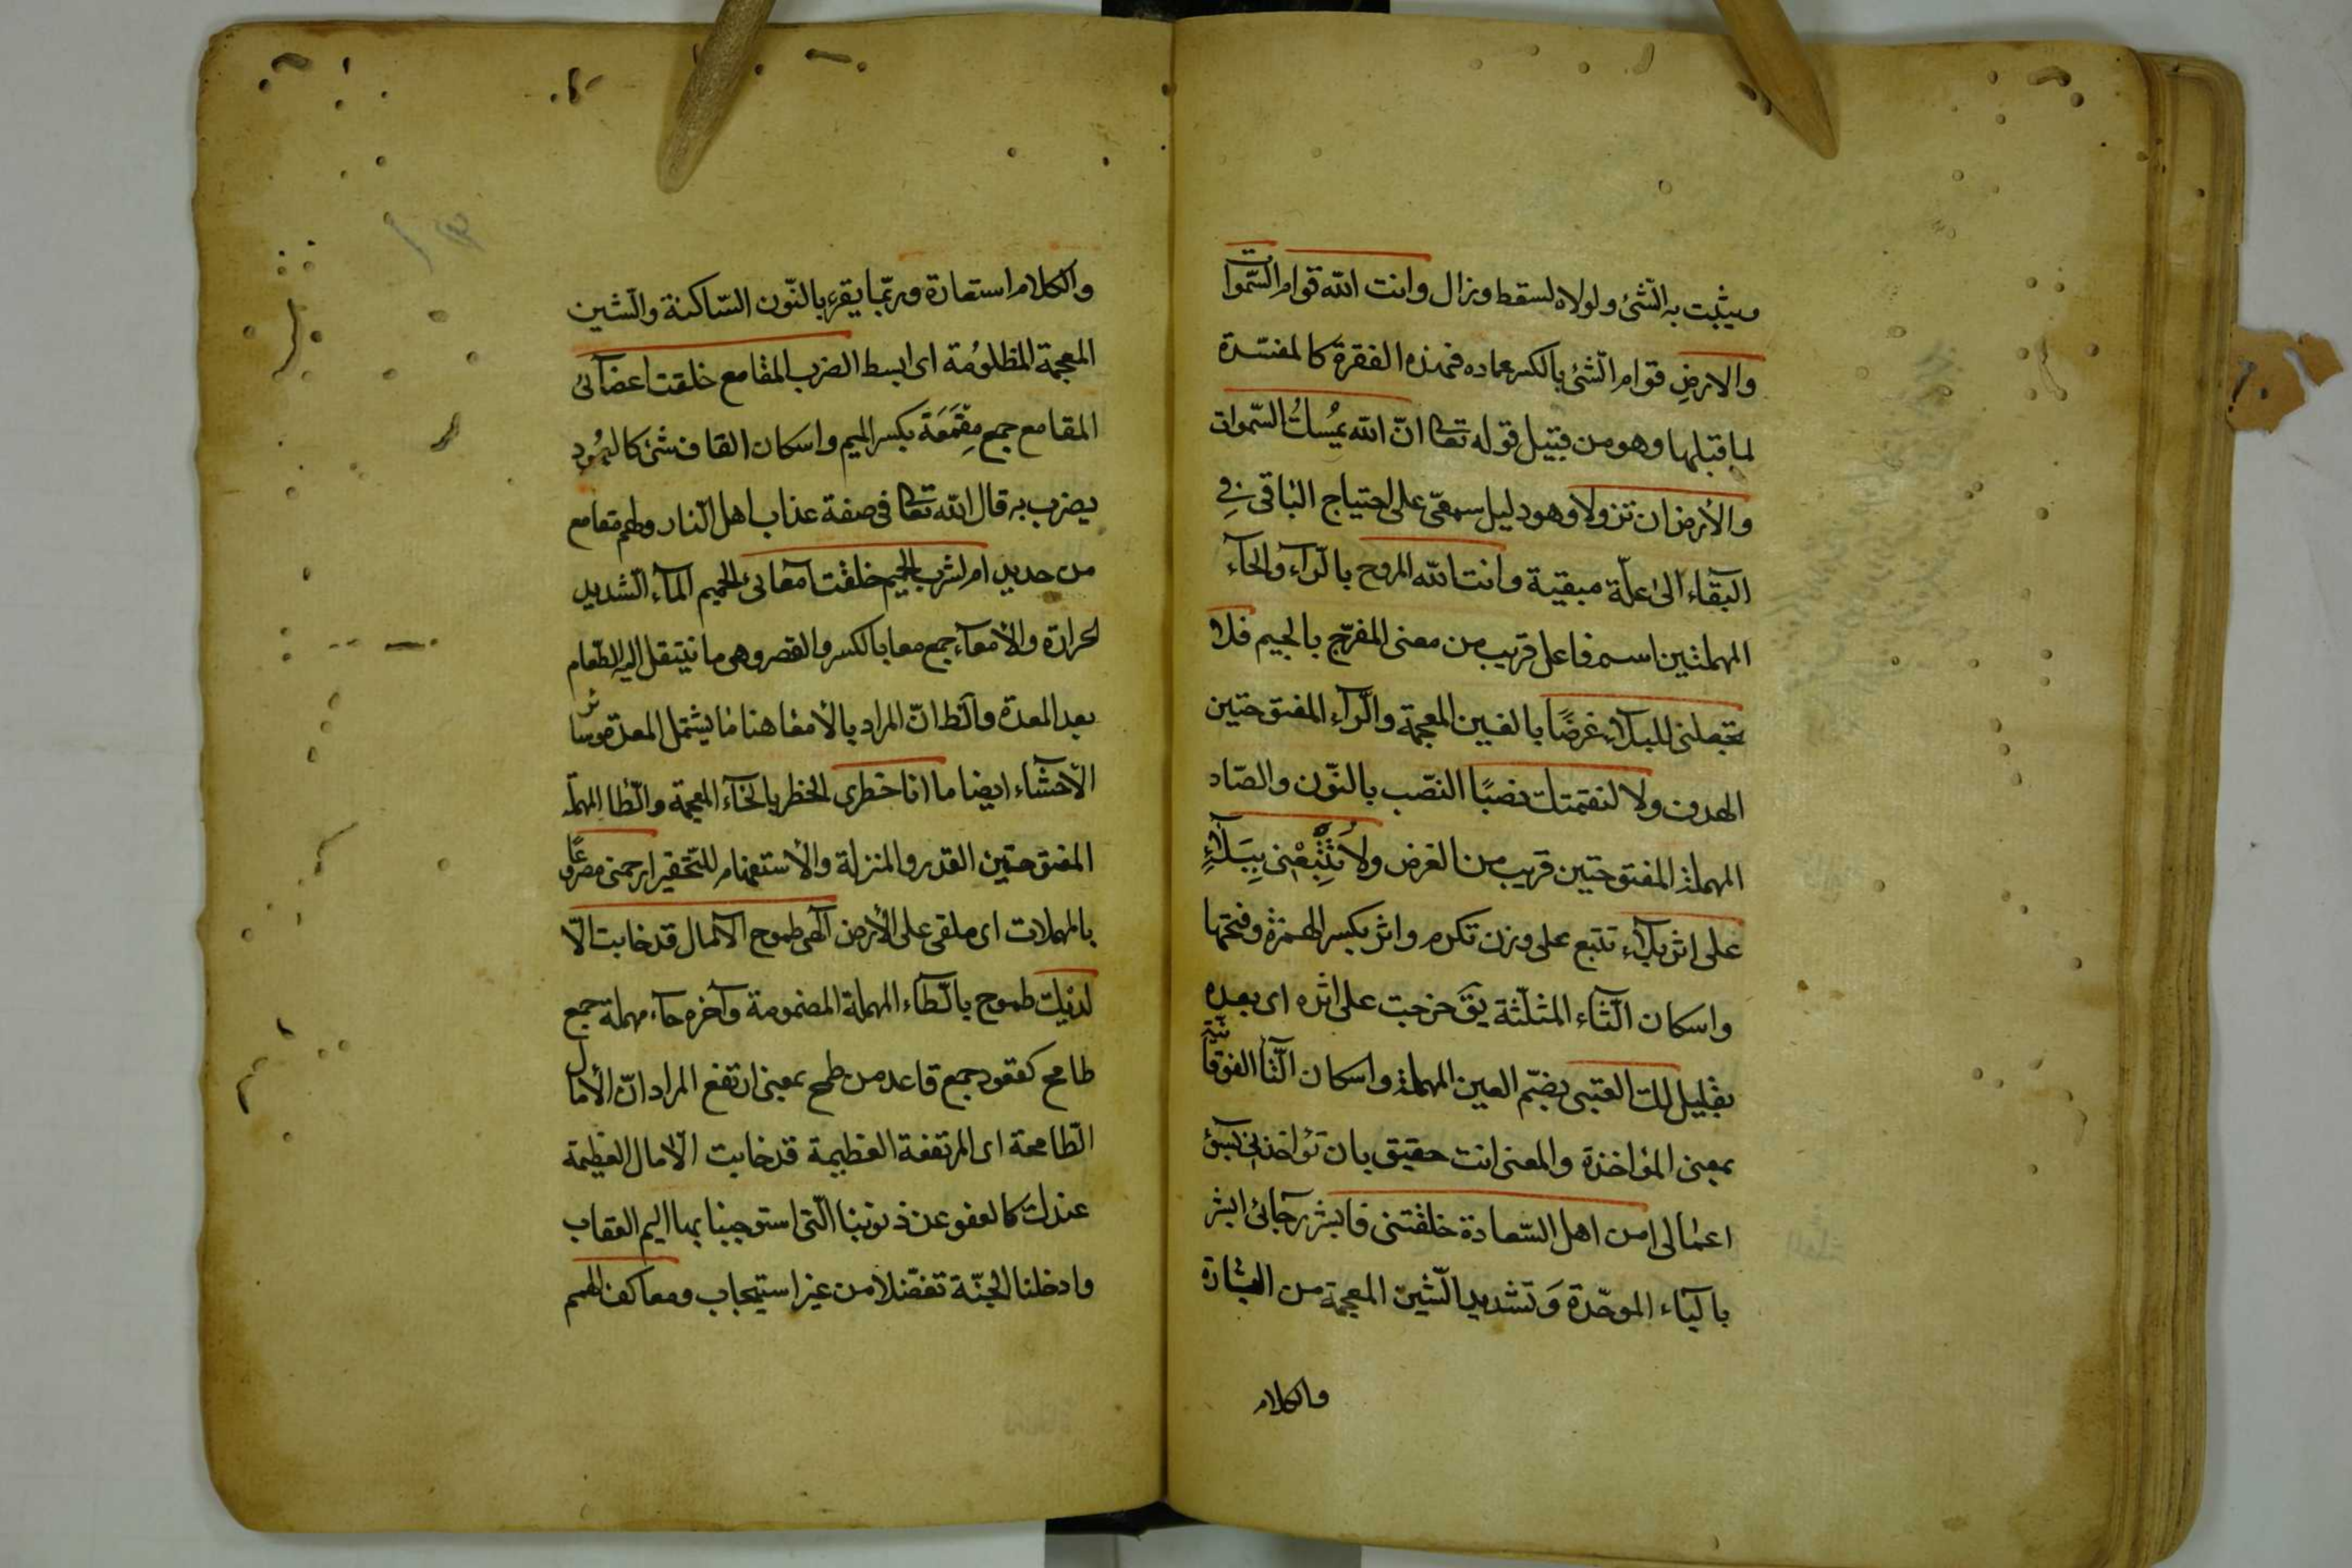 ويثبت به الشّئ ولولاه لسقط وزال وانت الله قوام السّموا
والارضِ قوام الشّئ بالكسر عماده فهذه الفقرة كالمفسّرة
لما قبلها وهو من قبيل قوله تعالى انّ الله يُمْسِكُ السّموات
والأرض ان تزولا وهو دليل سمعيّ على احتياج الباقى فِى
البقآء الى علّة مبقية وانت الله المروح بالرّاء والحآء
المهملتين اسم فاعل قريب من معنى المفرّج بالجيم فلا
تجعلنى للبلاء غرضًا بالغين المعجمة والرّاء المفتوحتين
الهدف ولا لنقمتك نصبًا النصّب بالنّون والصّاد
المهملة المفتوحتين قريب من الغرض ولا تُتْبِعْنى بِبَلَاءٍ
على اثر بلاء تتبع على وزن تكرم واثر بكسر الهمزة وفتحها
واسكان الثّاء المثلّثة يقَ خرجت على اثره اى بعده
بقليل لك العتبى بضمّ العين المهملة واسكان التّا الفوقانية
بمعنى المؤاخذة والمعنى انت حقيق بان تؤاخذنى بسوء
اعمالى امن اهل السّعادة خلقتنى فابشر رجآئى ابشر
بالباء الموحّدة وَتشديد الشّين المعجمة من البشارة
والكلام
والكلام استعارة وربّما يقرء بالنّون السّاكنة والشين
المعجمة المظلومُة اى ابسط الضرب المقامع خلقت اعضآئى
المقامع جمع مِقْمَعَة بكسر الميم واسكان القاف شئ كالعمُود
يضرب به قال الله تعالى فى صفة عذاب اهل النّار ولهم مقامع
من حديد ام لشرب الحميم خلقت امعآئى الحميم المآء الشّديد
الحرارة والأمعآء جمع معا بالكسر والقصر وهى ما ينتقل اليه الطّعام
بعد المعدة والظ انّ المراد بالأمعا هنا ما يشتمل المعدة وسائر
الأحشاء ايضا ما انا خطرى الخطر بالخآء المعجمة والطّا المهملة
المفتوحتين القدر والمنزلة والأستفهام للتّحقير ارحمنى مصروعًا
بالمهملات اى ملقى على الأرض آلهى طموح الآمال قد خابت الّا
لديك طموح بالطّاء المهملة المضمومة وآخره حآء مهملة جمع
طامح كقعود جمع قاعد من طمح بمعنى ارتفع المراد انّ الأمال
الطّامحة اى المرتفعة العظيمة قد خابت الّا الامال العظيمة
عندك كالعفو عن ذنوبنا الّتى استوجبنا بها اليم العقاب
وادخلنا الجنّة تفضّلا من غير استيجاب ومعاكف الهمم